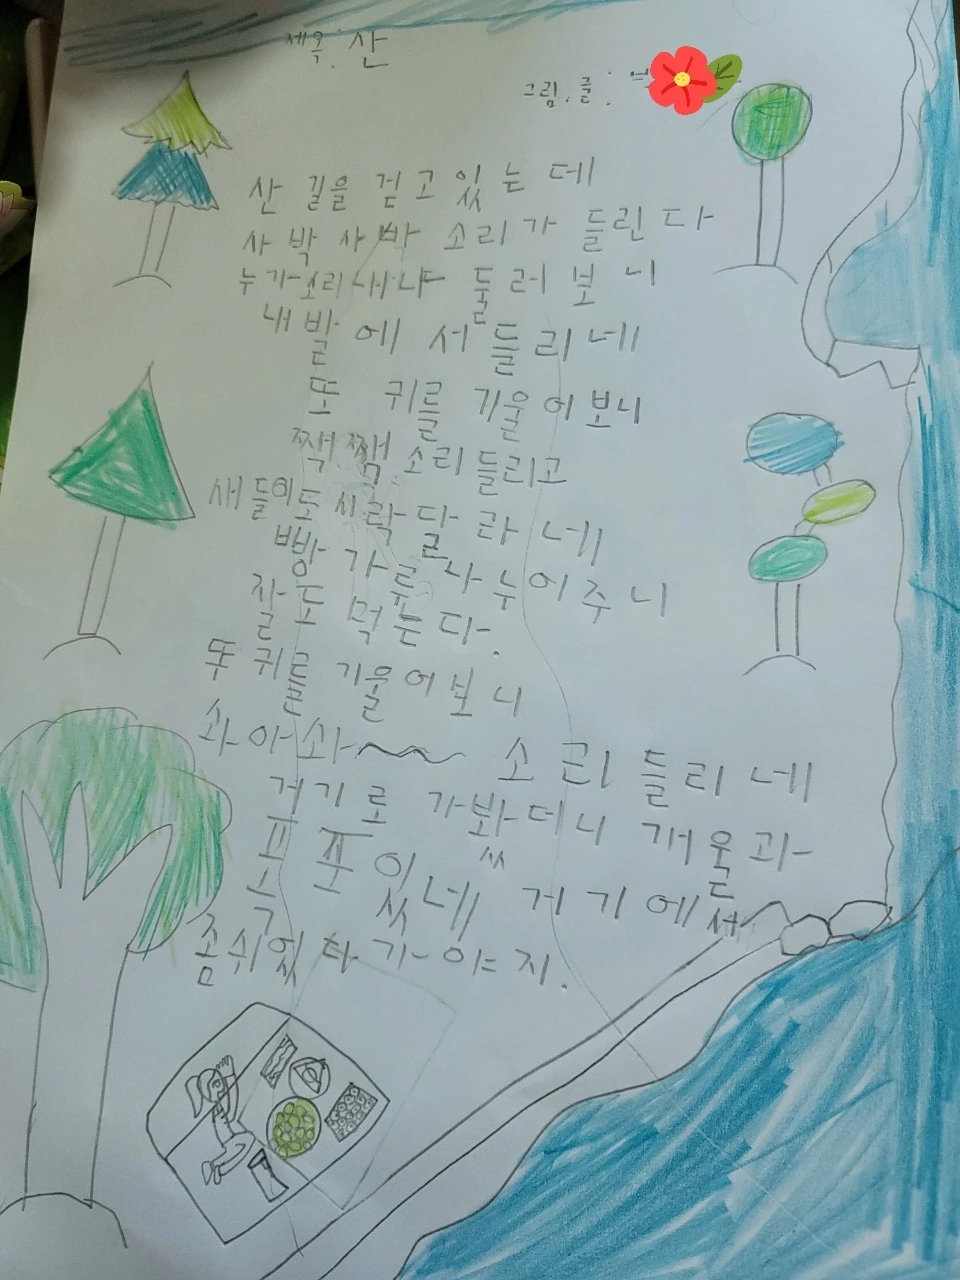 제목: 산
그림.글:
산 길을 걷고있는데
사박사바 소리가 들린다
누가소리내나 둘러보니
내발에서 들리네
또 귀를 기울어보니
짹짹소리들리고
새들이도시락달라네
빵가루나누어주니
잘도 먹는다.
또귀를 기울어보니
솨아솨~~~ 소리들리네
거기로 가봤더니 개울과
폭포있네 거기에서
좀쉬었다가야지.